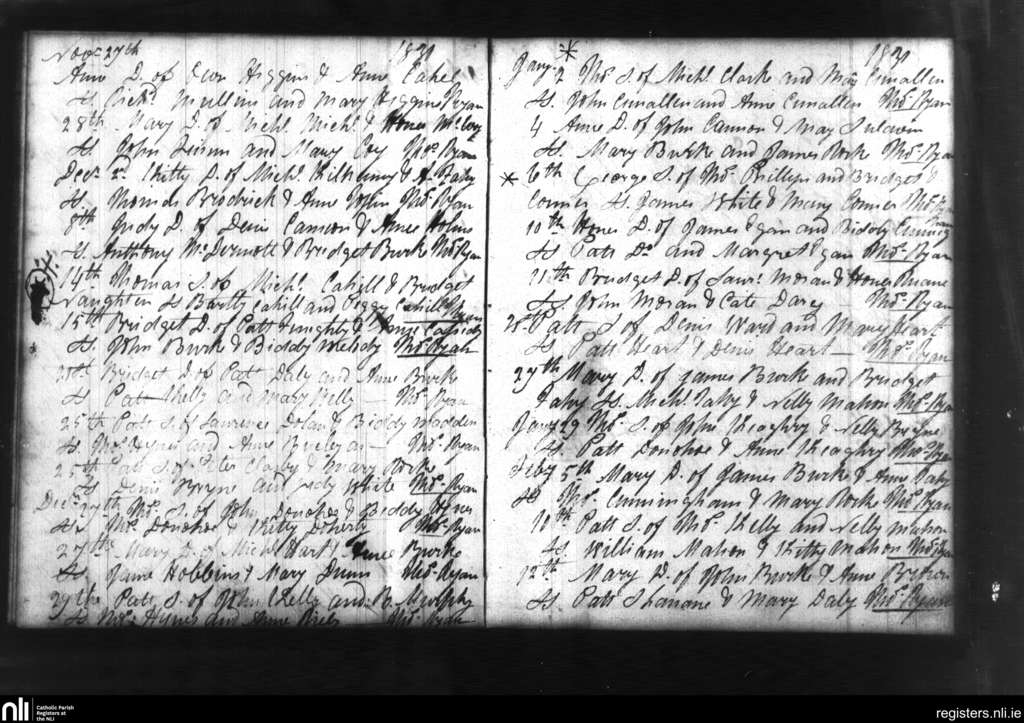 Novr 27th 1830
Anne D. of Higgins & Anne Cahel
Ss. Mullins and Mary Higgins Ryan
28th Mary D. of Michl. Michl. & Honor McCoy
Ss. John and Mary Coy Thos. Ryan
Decr. 2d. Kitty D. of Michl. Kilkenny & Fahy
Ss. Thomas Brodrick & Anne John Thos. Ryan
8th Judy D. of Denis Cannon & Anne Holms
Ss. Anthony McDermott & Bridget Burke Thos. Ryan
14th Thomas S. of Michl. Cahill & Bridget
Naughten Ss Bartly Cahill and Peggy Cahill Ryan
15th Bridget D. of Patt & Cassidy
Ss. John Burke & Biddy Melody Thos. Ryan
Bridget D. of Patt Daly and Anne Burke
Ss Patt Kelly and Mary Kelly — Thos. Ryan
25th Patt S. of Laurence Dolan & Biddy Madden
Ss. Thos. Hynes and Anne — Thos. Ryan
25th Patt S. of Peter & Mary
Ss Denis Bryne and Judy White Thos. Ryan
Decr. 27th Thos. S. of John Donohoe & Biddy Hynes
Ss. Thos. Donohoe & Kitty Doherty Thos. Ryan
27th Mary D. of Michl Hart & Anne Burke
Ss. James Hobbins & Mary Dunn Thos. Ryan
29th Patt S. of John Kelly and B. Murphy
Ss Hynes and Anne Thos. Ryan
1831
Jany. 2 Thos S. of Michl. Clark and May Cunallen
Ss. John Cunallen and Anne Cunallen Thos. Ryan
4 Anne D. of John Cannon & May
Ss. Mary Burke and James Rork Thos. Ryan
6th George S. of Thos. Phillips and Bridget
Conner Ss. James White & Mary Conner Thos. Ryan
10th Honor D. of James Egan and Biddy
Ss Patt Do. and Margret Egan Thos. Ryan
11th Bridget D. of Laurs. Moran & Honor Ruane
Ss John Moran & Cate Darcy Thos. Ryan
25 Patt S. of Denis Ward and Mary Heart
Ss Patt Heart & Denis Heart — Thos. Ryan
27th Mary D. of James Burke and Bridget
Fahy Ss. Michl. Fahy & Nelly Mahon Thos. Ryan
Jany 29 Thos. S. of John Keaghry & Nelly Bryne
Ss. Patt Donohoe & Anne Keaghry Thos. Ryan
Feby 5th Mary D. of James Burke & Anne Fahy
Ss Thos. Cunningham & Mary Rorke Thos. Ryan
10th Patt S. of Thos. Kelly and Nelly Mahon
Ss. William Mahon & Kitty Mahon Thos. Ryan
12th Mary D. of John Burke & Anne
Ss. Patt & Mary Daly Thos. Ryan
nli Catholic Parish
Registers at
the NLI
registers.nli.ie